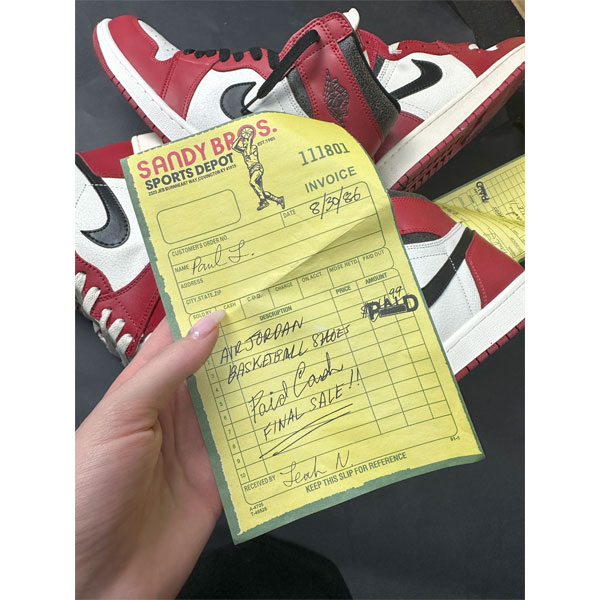 SANDY BROS.
SPORTS DEPOT EST. 1960
111801
INVOICE
DATE 8/30/86
CUSTOMER'S ORDER NO.
NAME Paul L.
ADDRESS
CITY, STATE, ZIP
SOLD BY CASH C.O.D. CHARGE ON ACCT. MDSE. RETD. PAID OUT
DESCRIPTION PRICE AMOUNT
AIR JORDAN
BASKETBALL SHOES
99
PAID
Paid Cash
FINAL SALE!!
4
5
6
7
8
9
10
RECEIVED BY Leah N
KEEP THIS SLIP FOR REFERENCE